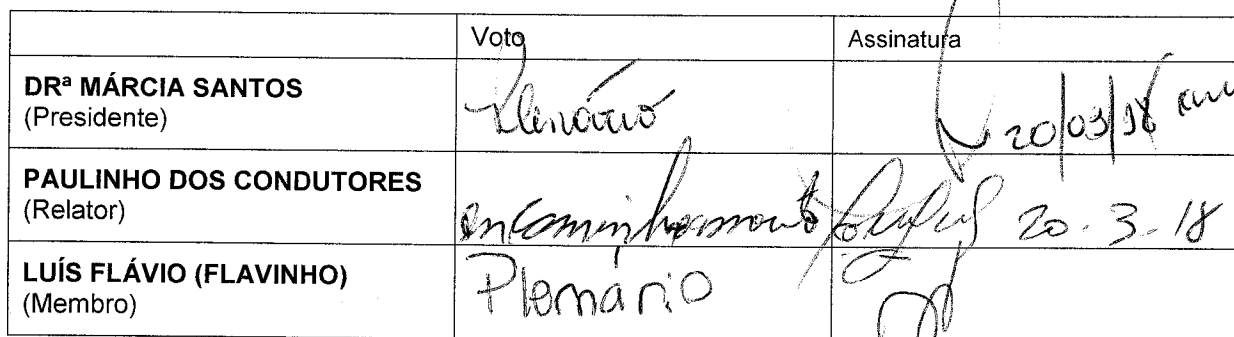 Voto Assinatura
DRª MÁRCIA SANTOS
(Presidente)
Plenário
20/03/18
PAULINHO DOS CONDUTORES
(Relator)
encaminhamento
20.3.18
LUÍS FLÁVIO (FLAVINHO)
(Membro)
Plenário